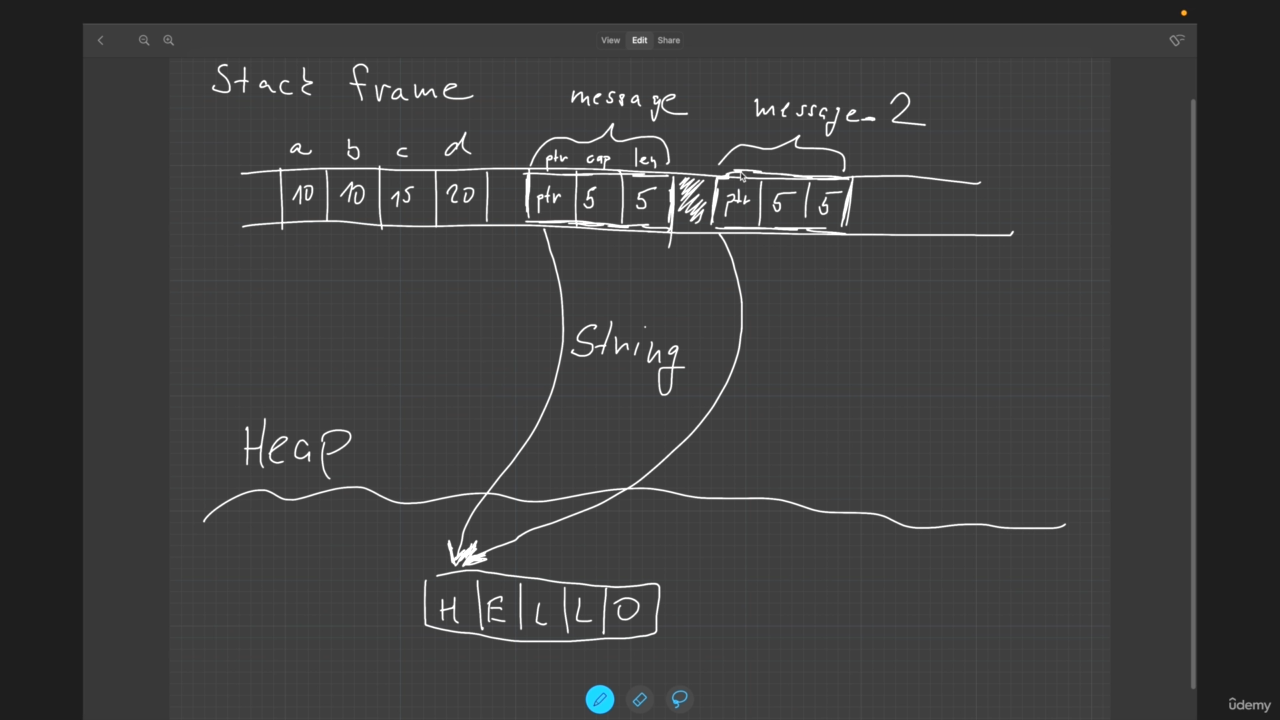 View Edit Share
Stack frame
message
message_2
a b c d
ptr cap len
10 10 15 20 ptr 5 5 ptr 5 5
String
Heap
H E L L O
ûdemy